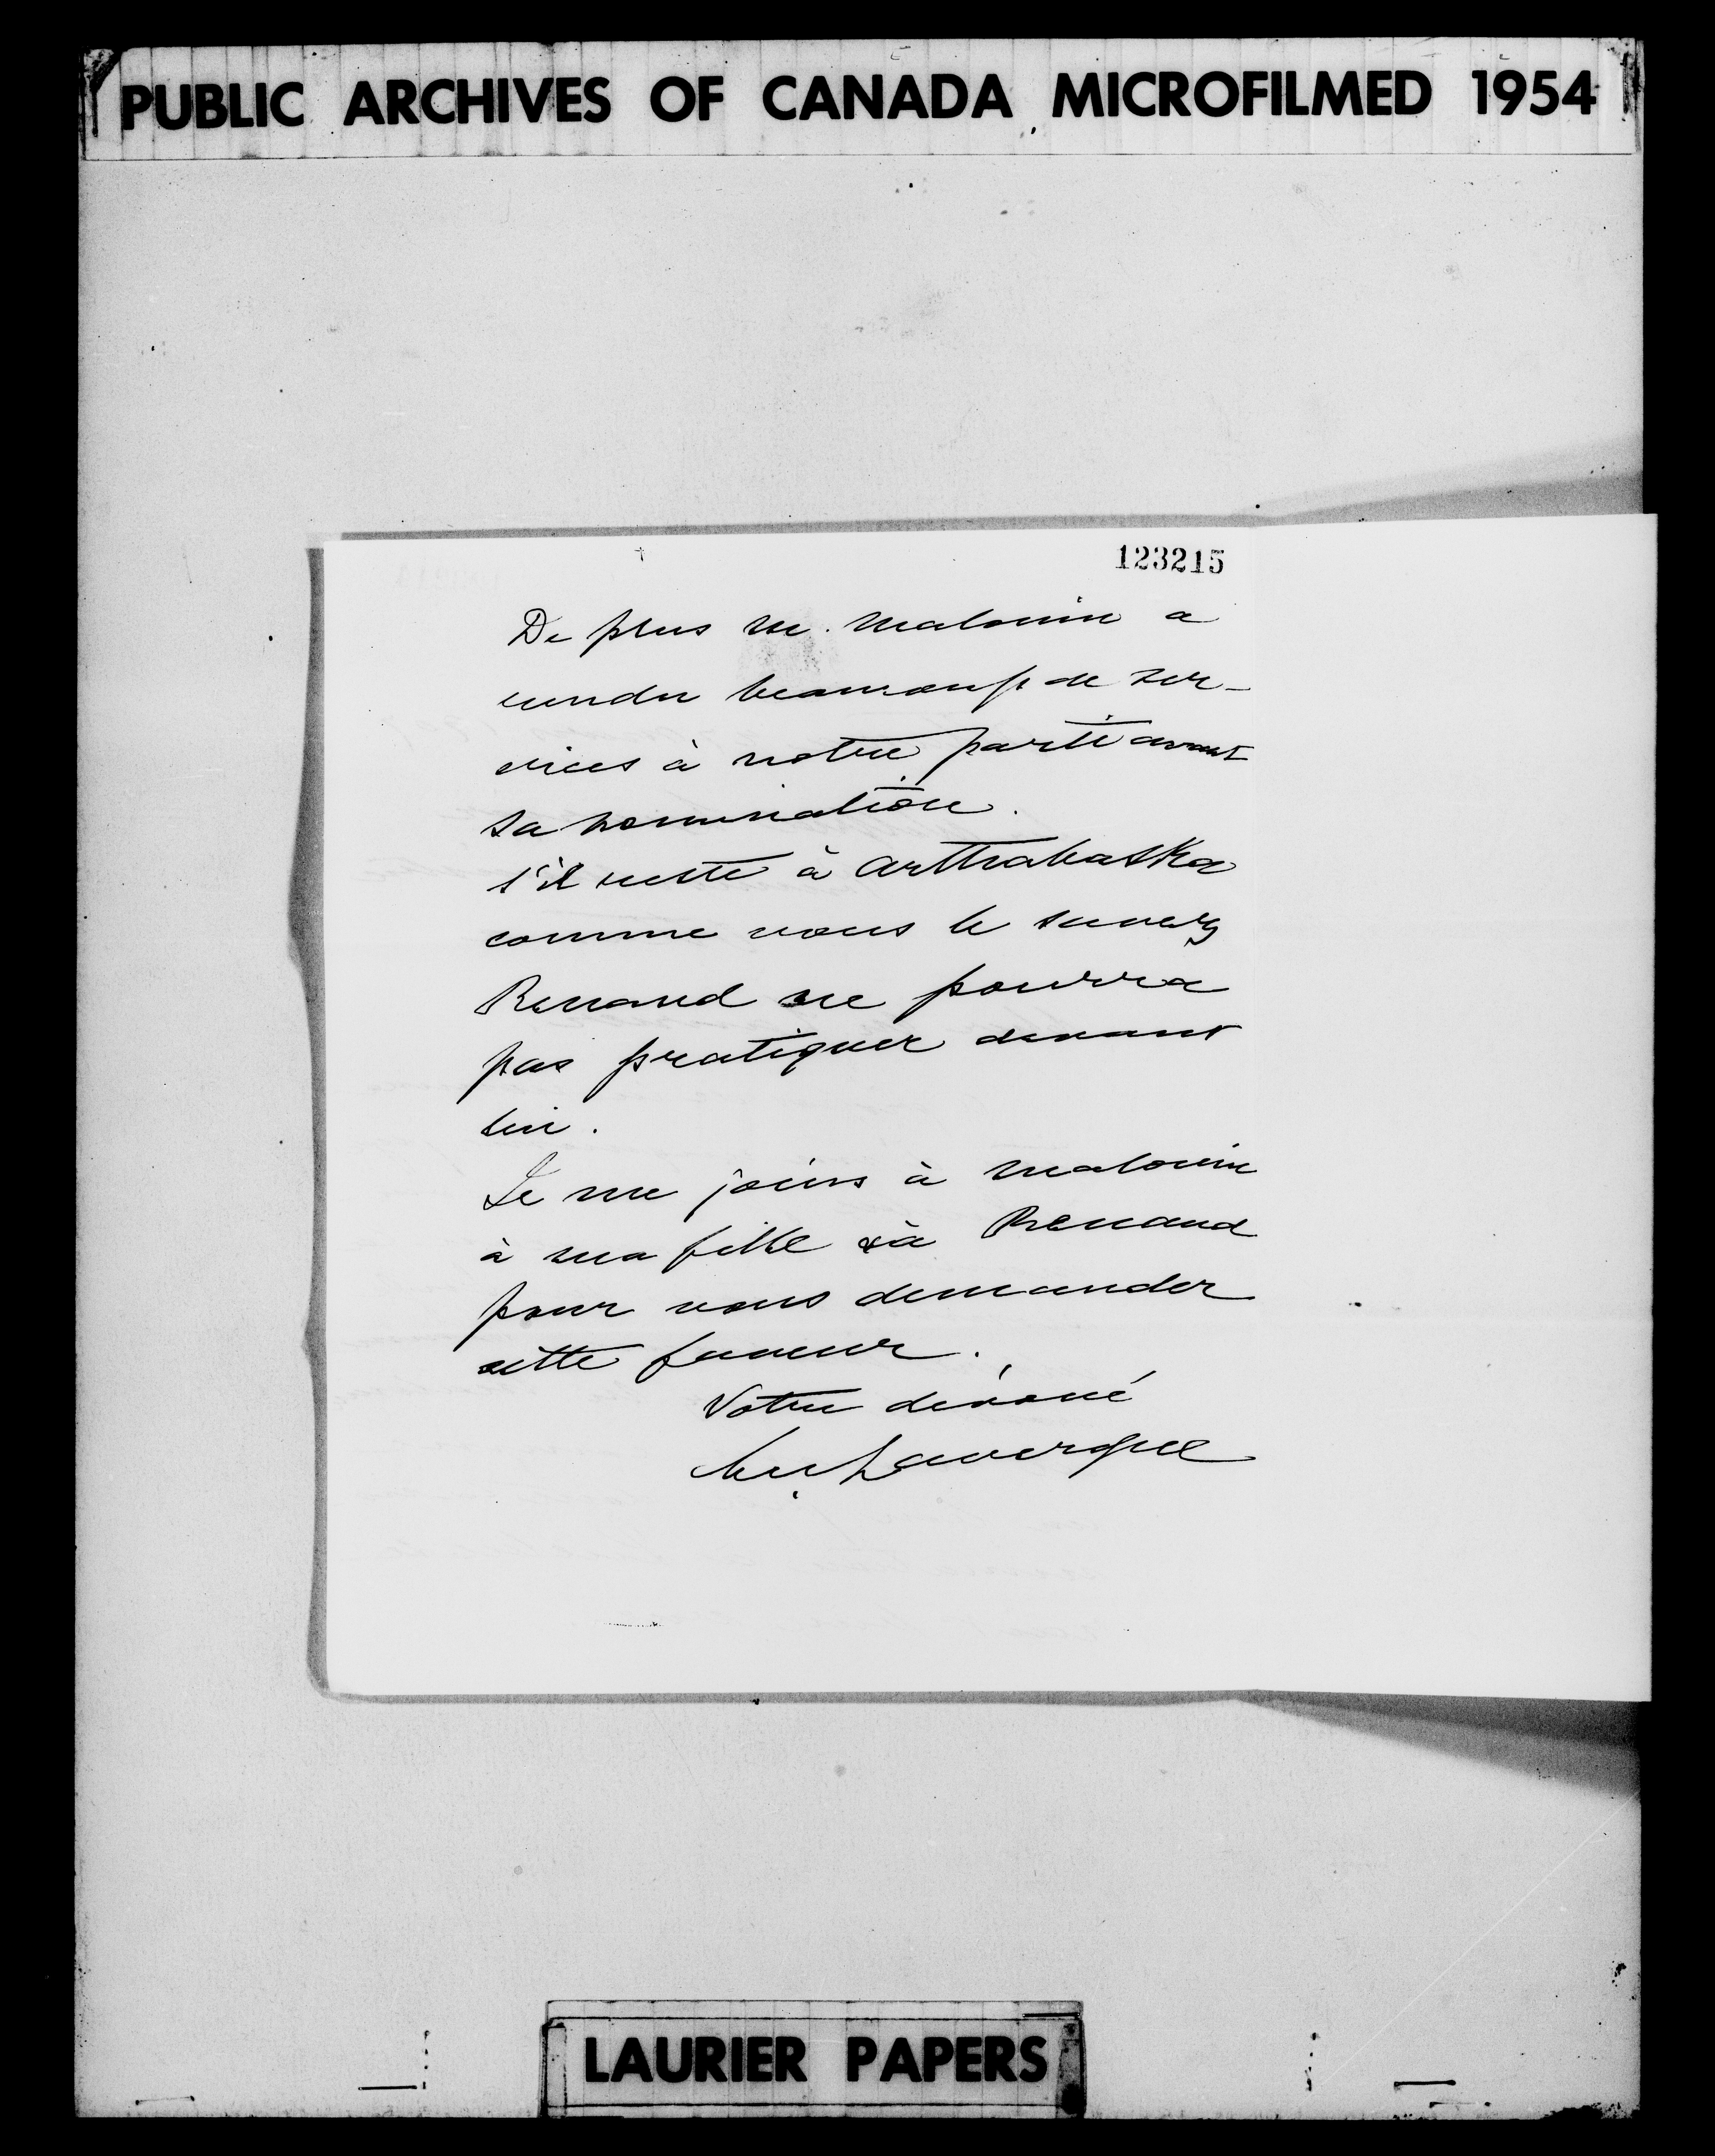 PUBLIC ARCHIVES OF CANADA MICROFILMED 1954
123215
De plus M. Malouin a
rendu beaucoup de ser-
vices à notre parti avant
sa nomination.
S'il reste à Arthabaska
comme vous le savez
Renaud ne pourra
pas pratiquer devant
lui.
Je me joins à Malouin
à ma fille & à Renaud
pour vous demander
cette faveur.
Votre dévoué
Lavergne
LAURIER PAPERS